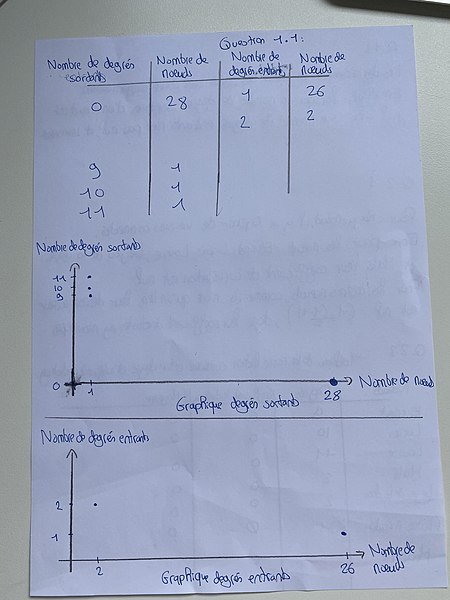 Question 1.1:
Nombre de degrés sortants | Nombre de nœuds | Nombre de degrés entrants | Nombre de nœuds
0 | 28 | 1 | 26
2 | 2
9 | 1
10 | 1
11 | 1
Nombre de degrés sortants
11
10
9
0
1
28
Nombre de nœuds
Graphique degrés sortants
Nombre de degrés entrants
2
1
2
26
Nombre de nœuds
Graphique degrés entrants